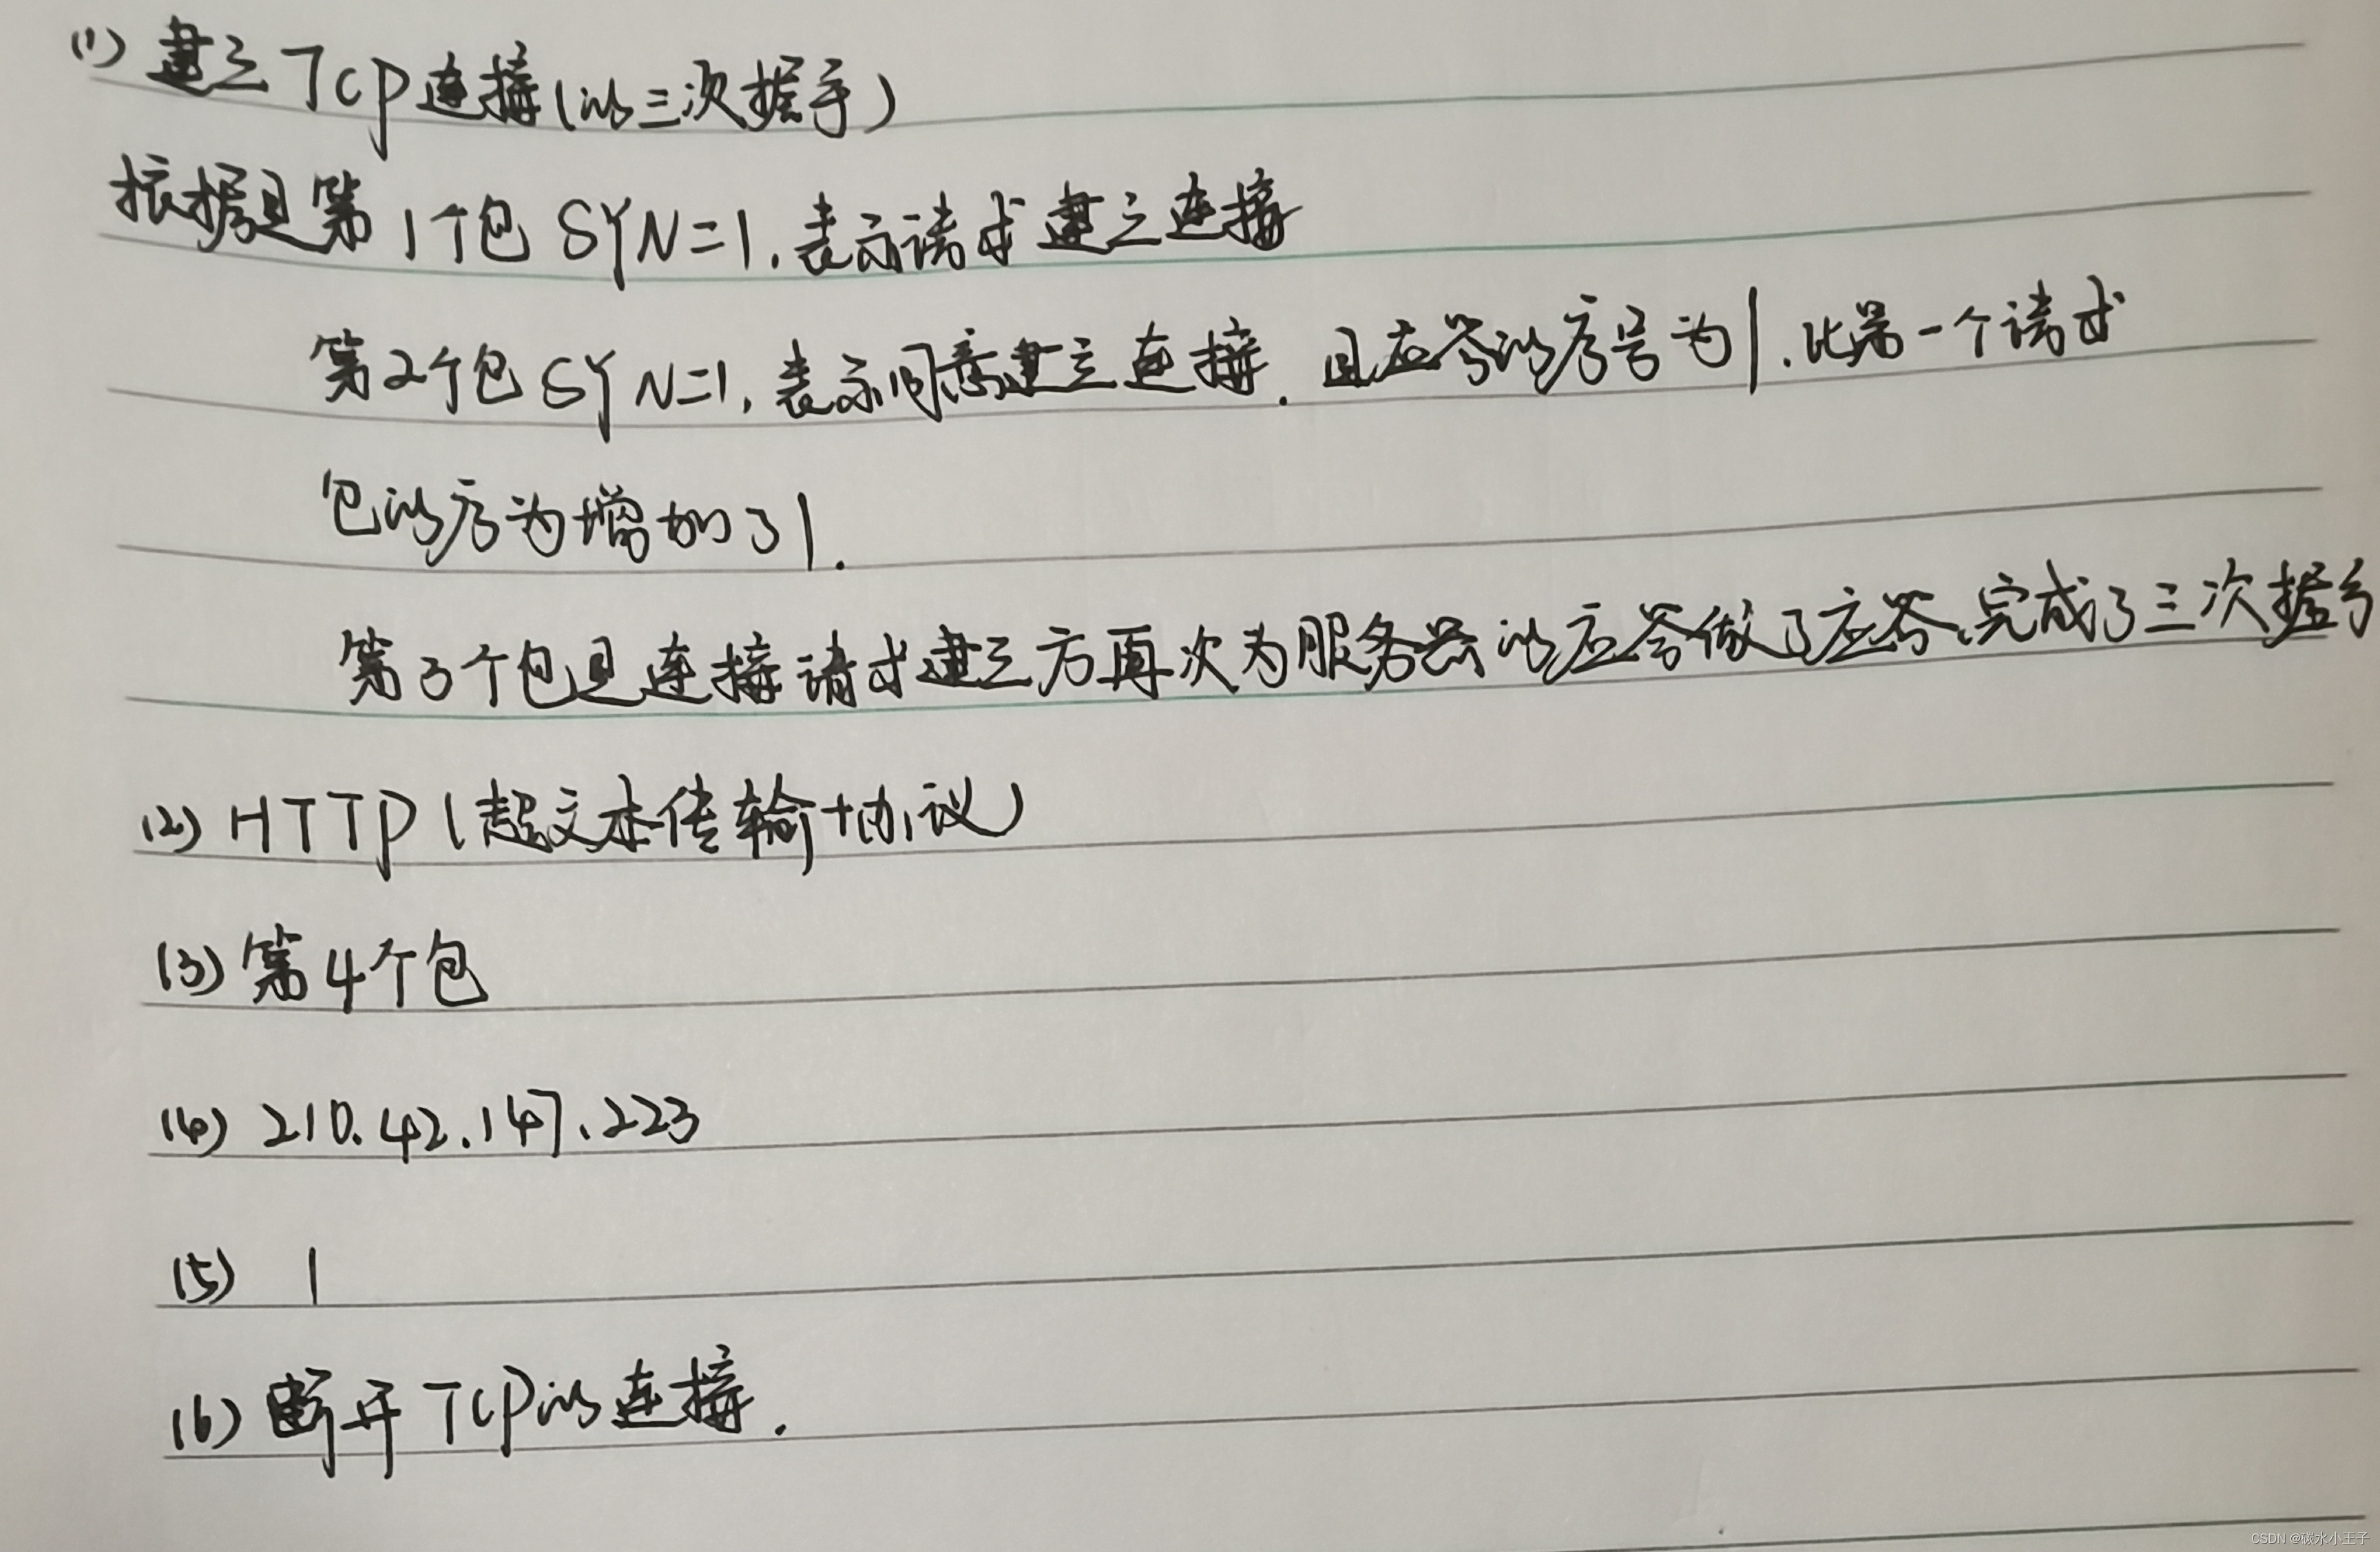 (1) 建立TCP连接(的三次握手)
依据是第1个包SYN=1.表示请求建立连接
第2个包SYN=1,表示同意建立连接.且应答的序号为1.比第一个请求
包的序为增加了1.
第3个包是连接请求建立方再次为服务器的应答做了应答,完成了三次握手
(2) HTTP(超文本传输协议)
(3) 第4个包
(4) 210.42.147.223
(5) 1
(6) 断开TCP的连接.
CSDN @碳水小王子